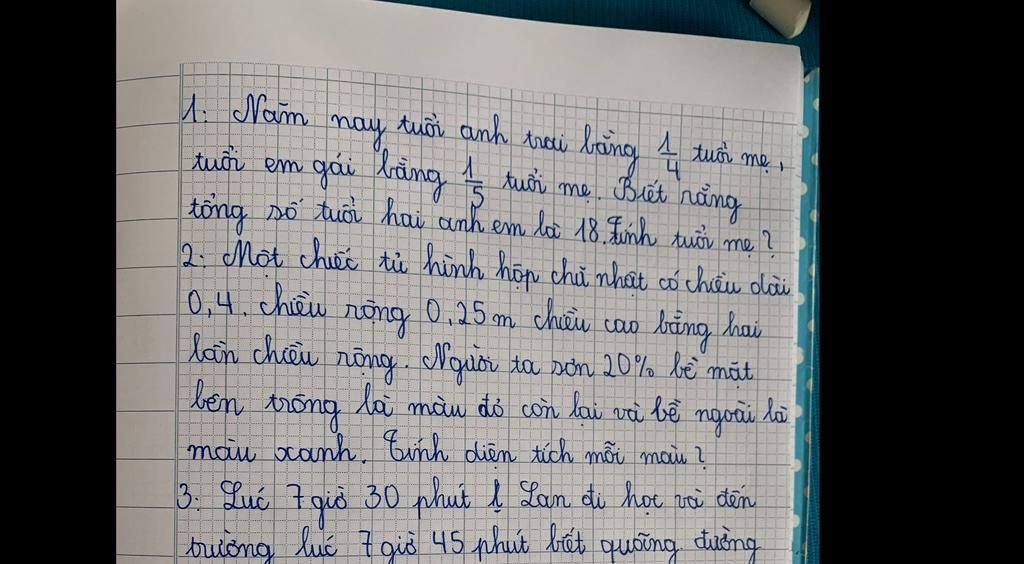 1. Năm nay tuổi anh trai bằng 1/4 tuổi mẹ,
tuổi em gái bằng 1/5 tuổi mẹ. Biết rằng
tổng số tuổi hai anh em là 18. Tính tuổi mẹ?
2. Một chiếc tủ hình hộp chữ nhật có chiều dài
0,4. chiều rộng 0,25m chiều cao bằng hai
lần chiều rộng. Người ta sơn 20% bề mặt
bên trong là màu đỏ còn lại và bề ngoài là
màu xanh. Tính diện tích mỗi màu?
3. Lúc 7 giờ 30 phút Lan đi học và đến
trường lúc 7 giờ 45 phút biết quãng đường